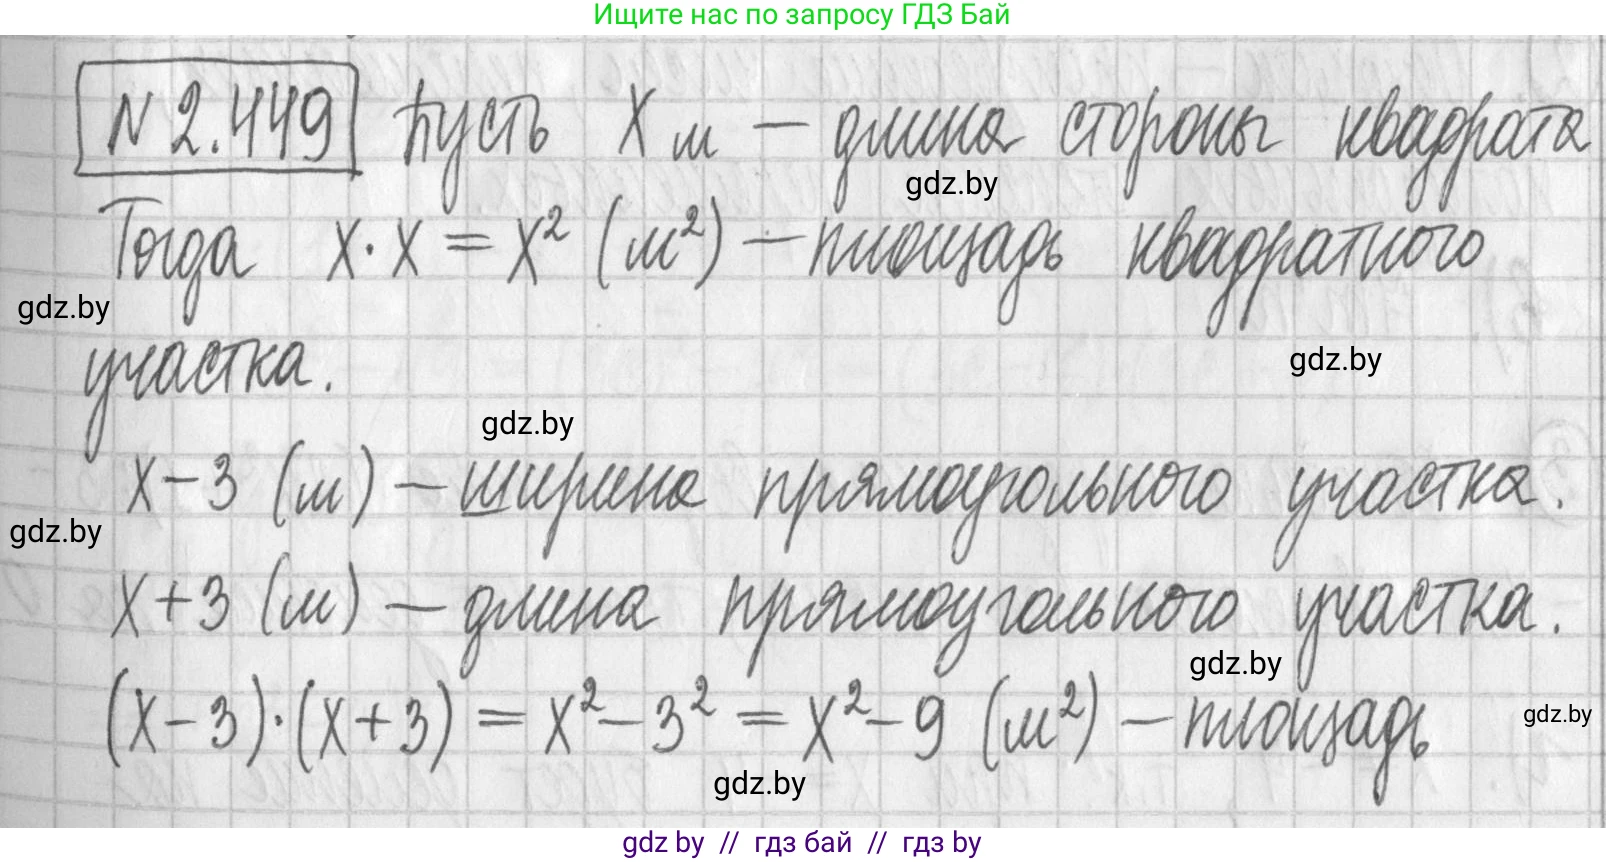 Ищите нас по запросу ГДЗ Бай
N 2.449 Пусть x м — длина стороны квадрата
gdz.by
Тогда x · x = x² (м²) — площадь квадратного
gdz.by
участка.
gdz.by
gdz.by
x − 3 (м) — ширина прямоугольного участка.
gdz.by
x + 3 (м) — длина прямоугольного участка.
gdz.by
(x − 3) · (x + 3) = x² − 3² = x² − 9 (м²) — площадь
gdz.by
gdz.by
gdz by // гдз бай // гдз by